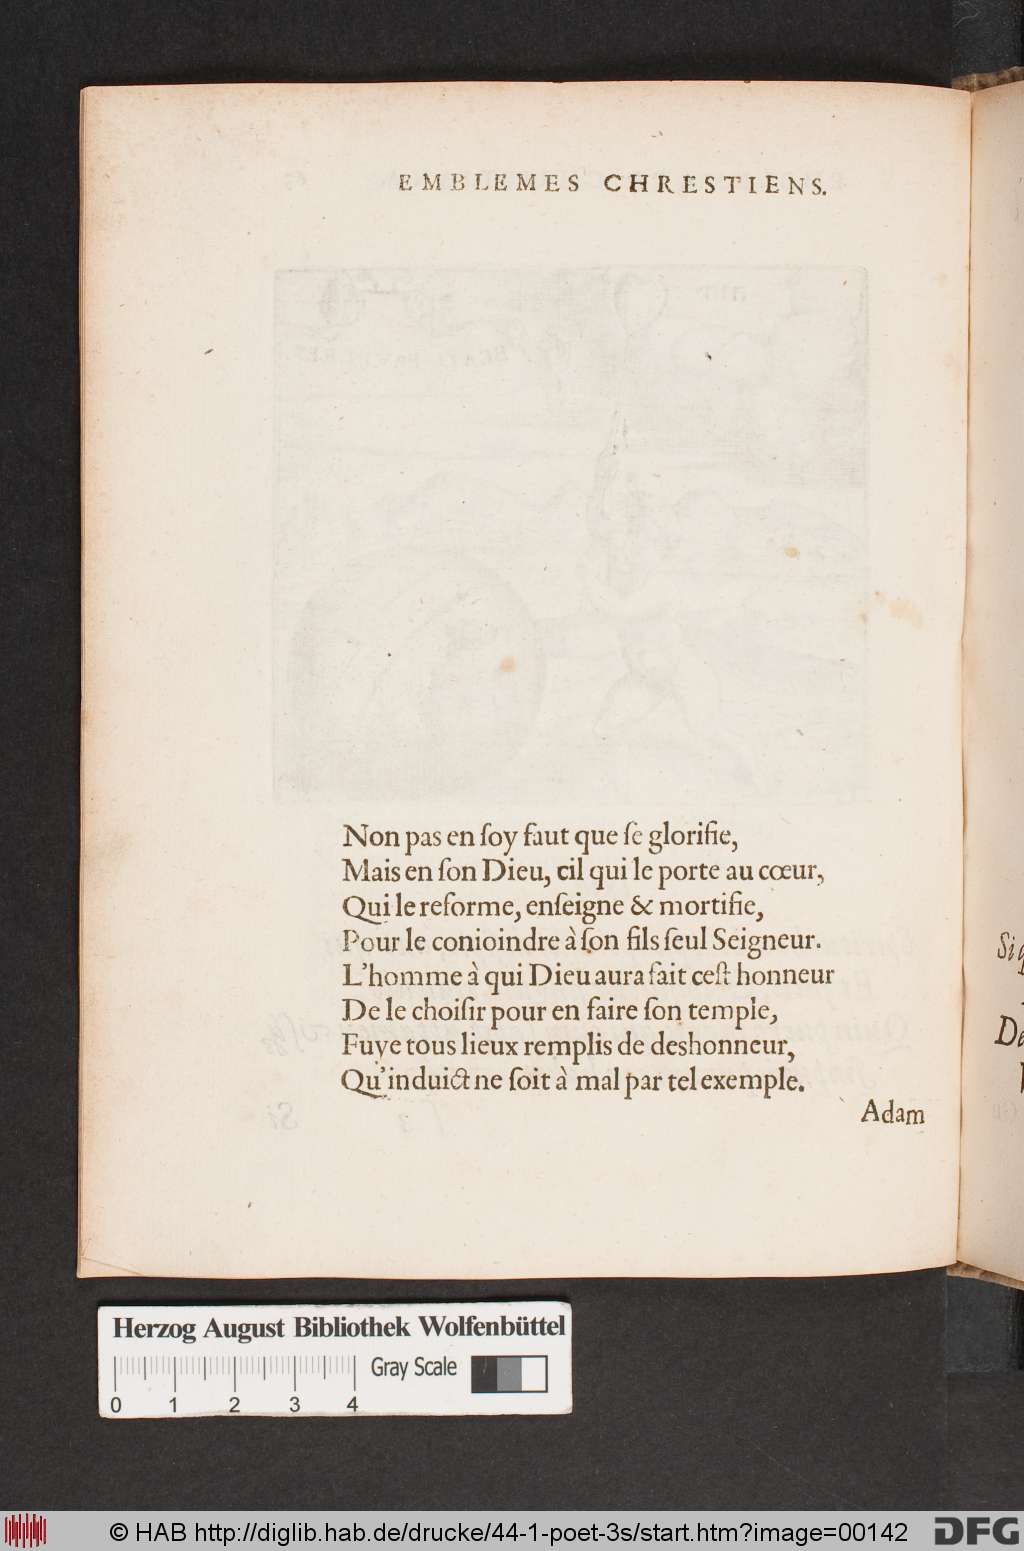 EMBLEMES CHRESTIENS.
Non pas en ſoy faut que ſe glorifie,
Mais en ſon Dieu, cil qui le porte au cœur,
Qui le reforme, enſeigne & mortifie,
Pour le conioindre à ſon fils ſeul Seigneur.
L'homme à qui Dieu aura fait ceſt honneur
De le choiſir pour en faire ſon temple,
Fuye tous lieux remplis de deshonneur,
Qu'induict ne ſoit à mal par tel exemple.
Adam
De
Herzog August Bibliothek Wolfenbüttel
Gray Scale
0 1 2 3 4
© HAB http://diglib.hab.de/drucke/44-1-poet-3s/start.htm?image=00142
DFG